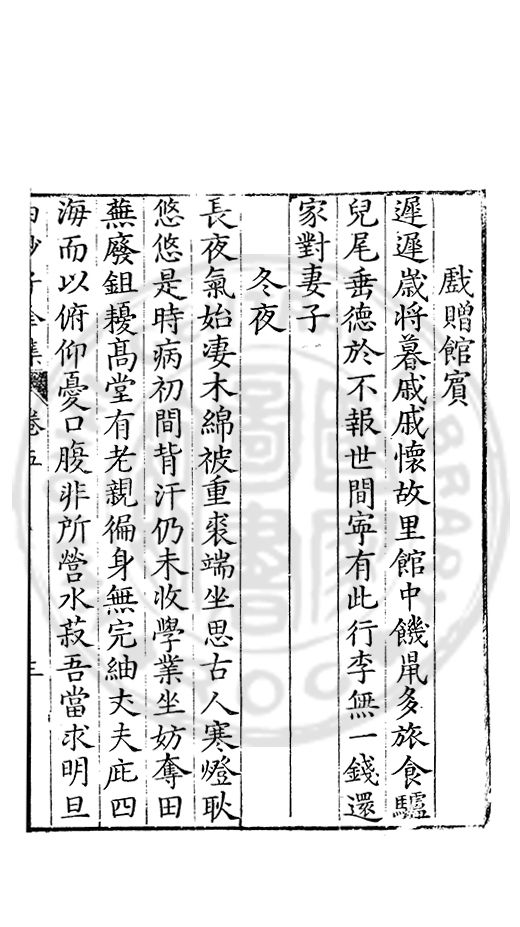 戲贈館賓
遲遲歲將暮戚戚懷故里館中饑鼠多旅食驢
兒尾垂德於不報世間寧有此行李無一錢還
家對妻子
冬夜
長夜氣始凄木綿被重裘端坐思古人寒燈耿
悠悠是時病初間背汗仍未收學業坐妨奪田
蕪廢鉏耰高堂有老親徧身無完紬丈夫庇四
海而以俯仰憂口腹非所營水菽吾當求明旦
子全集 卷五 三